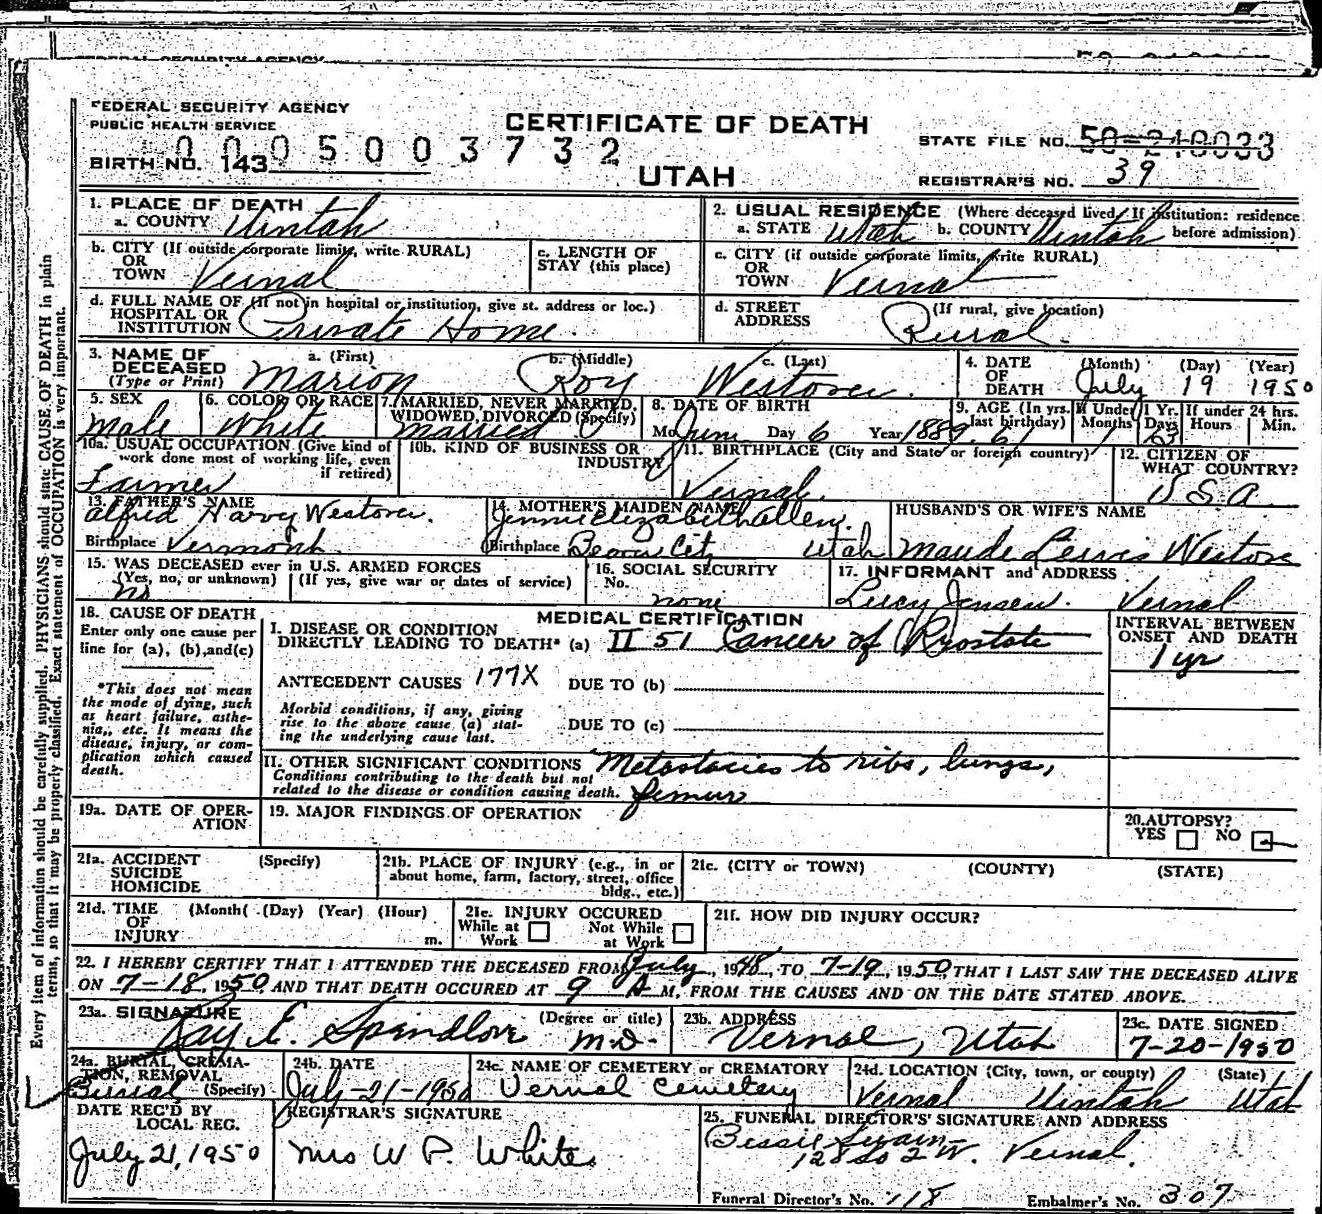 FEDERAL SECURITY AGENCY
PUBLIC HEALTH SERVICE
CERTIFICATE OF DEATH
UTAH
0005003732
BIRTH NO. 143
STATE FILE NO. 50-210033
REGISTRAR'S NO. 39
1. PLACE OF DEATH
a. COUNTY Uintah
2. USUAL RESIDENCE (Where deceased lived. If institution: residence before admission)
a. STATE Utah b. COUNTY Uintah
b. CITY (If outside corporate limits, write RURAL) OR TOWN Vernal
c. LENGTH OF STAY (this place)
c. CITY (if outside corporate limits, write RURAL) OR TOWN Vernal
d. FULL NAME OF (If not in hospital or institution, give st. address or loc.) HOSPITAL OR INSTITUTION Private Home.
d. STREET ADDRESS (If rural, give location) Rural.
3. NAME OF DECEASED (Type or Print)
a. (First) Marion b. (Middle) Roy c. (Last) Westover.
4. DATE OF DEATH (Month) (Day) (Year) July 19 1950
5. SEX Male
6. COLOR OR RACE White
7. MARRIED, NEVER MARRIED, WIDOWED, DIVORCED (Specify) Married
8. DATE OF BIRTH Mo. June Day 6 Year 1889.
9. AGE (In yrs. last birthday) 61
If Under 1 Yr. Months 1 Days 13
If under 24 hrs. Hours Min.
10a. USUAL OCCUPATION (Give kind of work done most of working life, even if retired) Farmer
10b. KIND OF BUSINESS OR INDUSTRY
11. BIRTHPLACE (City and State or foreign country) Vernal.
12. CITIZEN OF WHAT COUNTRY? U S A
13. FATHER'S NAME Alfred Harvy Westover.
Birthplace Vermont.
14. MOTHER'S MAIDEN NAME Jennie Elizabeth Allen.
Birthplace Beaver City Utah
HUSBAND'S OR WIFE'S NAME
Maude Lewis Westover
15. WAS DECEASED ever in U.S. ARMED FORCES
(Yes, no, or unknown) (If yes, give war or dates of service)
no
16. SOCIAL SECURITY No. none
17. INFORMANT and ADDRESS
Lucy Jensen. Vernal
18. CAUSE OF DEATH
Enter only one cause per line for (a), (b), and (c)
*This does not mean the mode of dying, such as heart failure, asthenia, etc. It means the disease, injury, or complication which caused death.
MEDICAL CERTIFICATION
I. DISEASE OR CONDITION DIRECTLY LEADING TO DEATH* (a) II 51 Cancer of Prostate
INTERVAL BETWEEN ONSET AND DEATH
1 yr
ANTECEDENT CAUSES 177X DUE TO (b)
Morbid conditions, if any, giving rise to the above cause (a) stating the underlying cause last.
DUE TO (c)
II. OTHER SIGNIFICANT CONDITIONS Metastacies to ribs, lungs, femur
Conditions contributing to the death but not related to the disease or condition causing death.
19a. DATE OF OPERATION
19. MAJOR FINDINGS OF OPERATION
20. AUTOPSY?
YES NO
21a. ACCIDENT SUICIDE HOMICIDE (Specify)
21b. PLACE OF INJURY (e.g., in or about home, farm, factory, street, office bldg., etc.)
21c. (CITY or TOWN) (COUNTY) (STATE)
21d. TIME OF INJURY (Month( (Day) (Year) (Hour) m.
21e. INJURY OCCURED
While at Work Not While at Work
21f. HOW DID INJURY OCCUR?
22. I HEREBY CERTIFY THAT I ATTENDED THE DECEASED FROM July, 1948, TO 7-19, 1950, THAT I LAST SAW THE DECEASED ALIVE
ON 7-18, 1950, AND THAT DEATH OCCURED AT 9 A M, FROM THE CAUSES AND ON THE DATE STATED ABOVE.
23a. SIGNATURE (Degree or title)
Ray E. Spendlove M.D.
23b. ADDRESS
Vernal, Utah
23c. DATE SIGNED
7-20-1950
24a. BURIAL, CREMATION, REMOVAL (Specify) Burial
24b. DATE
July-21-1950
24c. NAME OF CEMETERY or CREMATORY
Vernal Cemetery
24d. LOCATION (City, town, or county) (State)
Vernal Uintah Utah
DATE REC'D BY LOCAL REG.
July 21, 1950
REGISTRAR'S SIGNATURE
Mrs W P. White
25. FUNERAL DIRECTOR'S SIGNATURE AND ADDRESS
Bessie Swain
128 So 2 W. Vernal.
Funeral Director's No. 118 Embalmer's No. 307
Every item of information should be carefully supplied. PHYSICIANS should state CAUSE OF DEATH in plain
terms, so that it may be properly classified. Exact statement of OCCUPATION is very important.